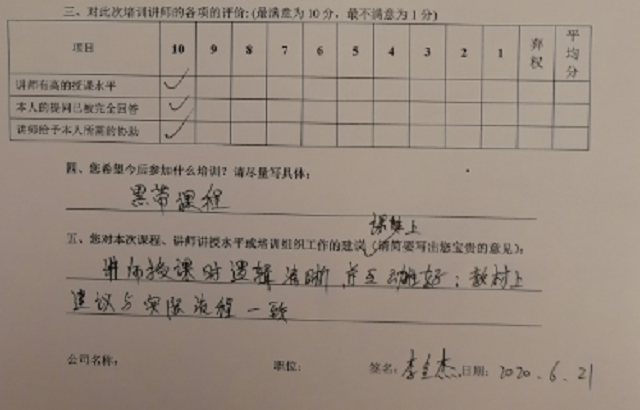 三、对此次培训讲师的各项的评价:(最满意为10分，最不满意为1分)
项目 10 9 8 7 6 5 4 3 2 1 弃权 平均分
讲师有高的授课水平 ✓
本人的提问已被完全回答 ✓
讲师给予本人所需的协助 ✓
四、您希望今后参加什么培训？请尽量写具体：
黑带课程
课堂上
五、您对本次课程、讲师讲授水平或培训组织工作的建议（请简要写出您宝贵的意见）：
讲师授课时逻辑清晰，并互动性好；教材上
建议与实际流程一致
公司名称： 职位： 签名：李 杰 日期：2020.6.21